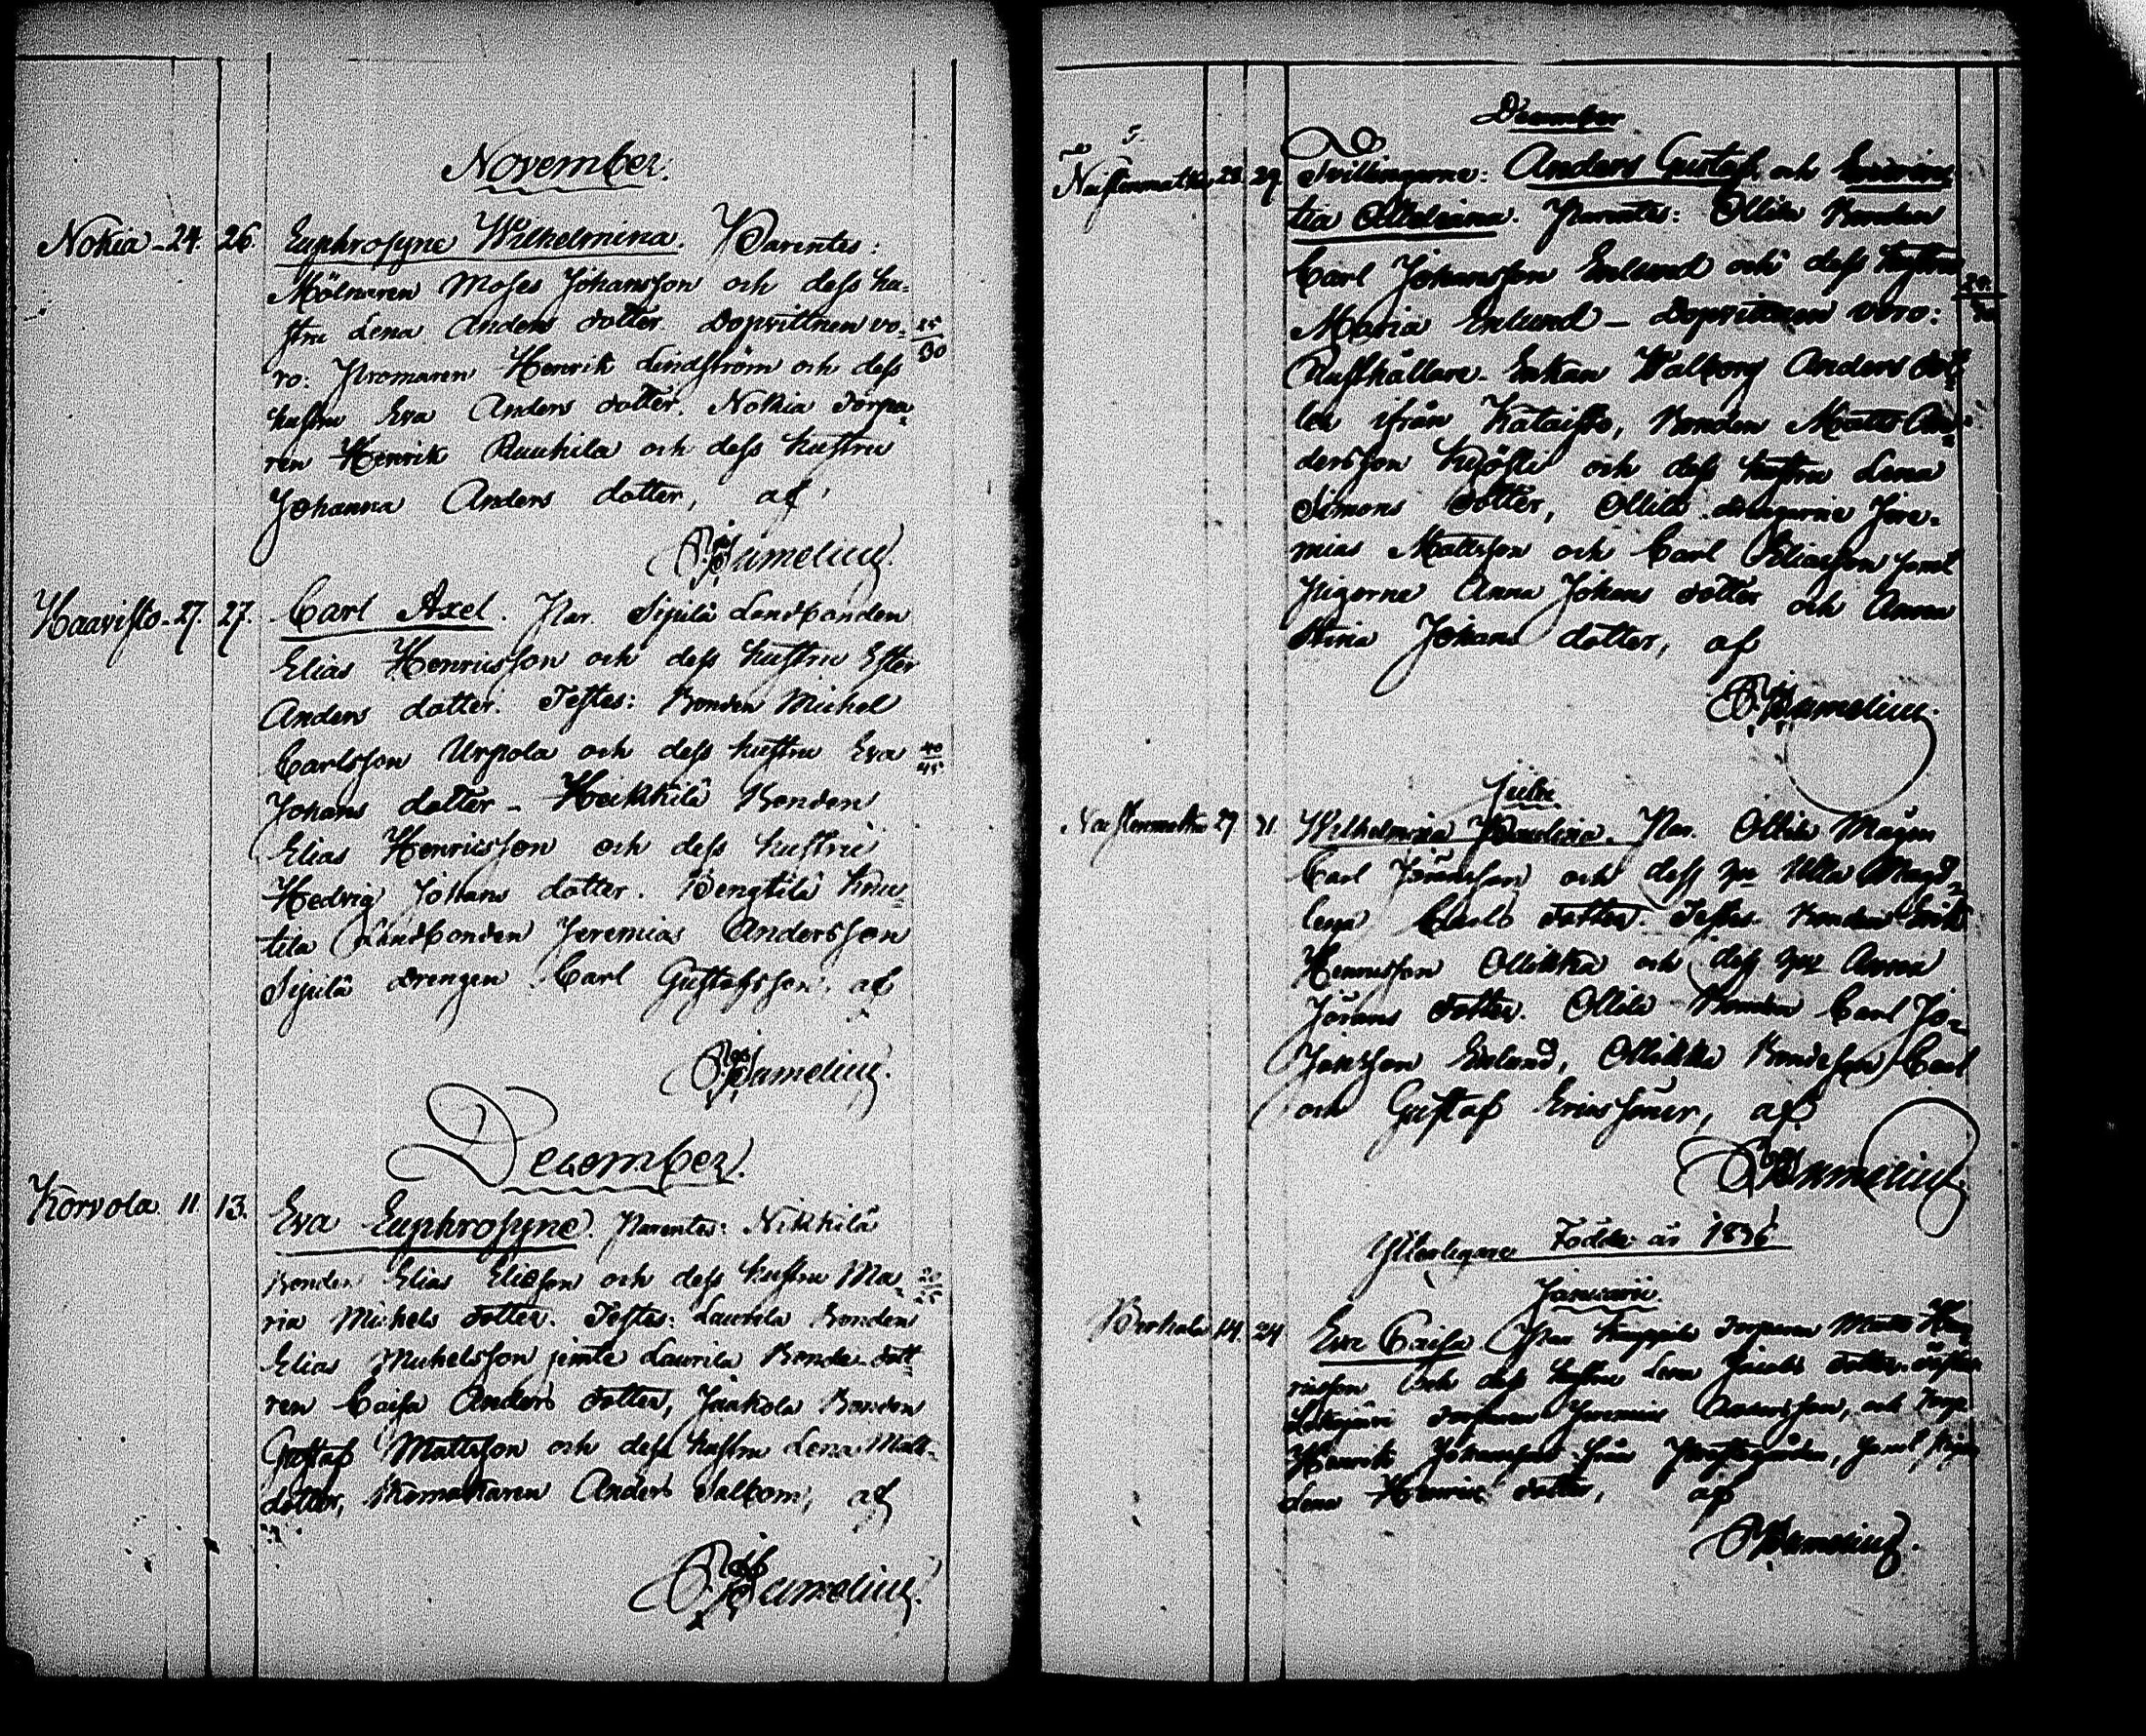 November.
Nokia - 24. 26. Euphrosyne Wilhelmina. Parentes:
Mölnaren Moses Johansson och dess hu-
stru Lena Anders dotter. Dopvittnen vo- 25/30
ro: Henrik Lindström och dess
hustru Eva Anders dotter. Nokia Torpa-
ren Henrik Ruuhila och dess hustru
Johanna Anders dotter, af
Bamelius.
Haavisto - 27. 27. Carl Axel. Par. Sipilä Landbonden
Elias Henricsson och dess hustru Ester
Anders dotter. Testes: Bonden Michel
Carlsson Urpola och dess hustru Eva 40/45
Johans dotter - Heikkilä Bonden
Elias Henricsson och dess hustru
Hedvig Johans dotter. Bengtilä Knu-
tila Landbonden Jeremias Andersson
Sipilä drengen Carl Gustafsson, af
Bamelius.
December.
Korvola 11. 13. Eva Euphrosyne. Parentes: Nikkilä
Bonden Elias Eliasson och dess hustru Ma- 20/25
ria Michels dotter. Testes: Laurila Bonden
Elias Michelsson jemte Laurila Bonde-dott-
ren Caisa Anders dotter, Jaakola Bonden
Gustaf Mattsson och dess hustru Lena Matts-
dotter, Skomakaren Anders Salbom, af
Bamelius.
December
28. 29. Tvillingarne: Anders Gustaf och
Parentes: Ollila Bonden
Carl Johansson Enlund och dess hustru
Maria Enlund - Dopvittnen voro:
Rusthållare-Enkan Walborg Anders dot-
ter ifrån Kataisto, Bonden Matts An-
dersson och dess hustru Lena
Simons dotter, Ollila drengarne Jere-
mias Mattsson och Carl Eliasson samt
pigorne Anna Johans dotter och Anna
Stina Johans dotter, af
Bamelius.
Julii
27 31. Wilhelmina Paulina. Par. Ollila Mågen
Carl och dess hu Ulla Magd-
lena Carls dotter. Testes. Bonden Erik
Henricsson Ollikka och dess hu Anna
Johans dotter. Ollila Bonden Carl Jo-
hansson Enlund, Ollikka Bondesson Carl
och Gustaf Ericssöner, af
Bamelius.
Ytterligare Födde år 1836
Januarii.
14. 24 Eva Caisa. Par. Torparen Matts Hen-
ricsson och dess hustru Lena Jacobs dotter.
Torparen Jeremias och
Henrik Johansson från samt
Lena Henrics dotter, af
Bamelius.